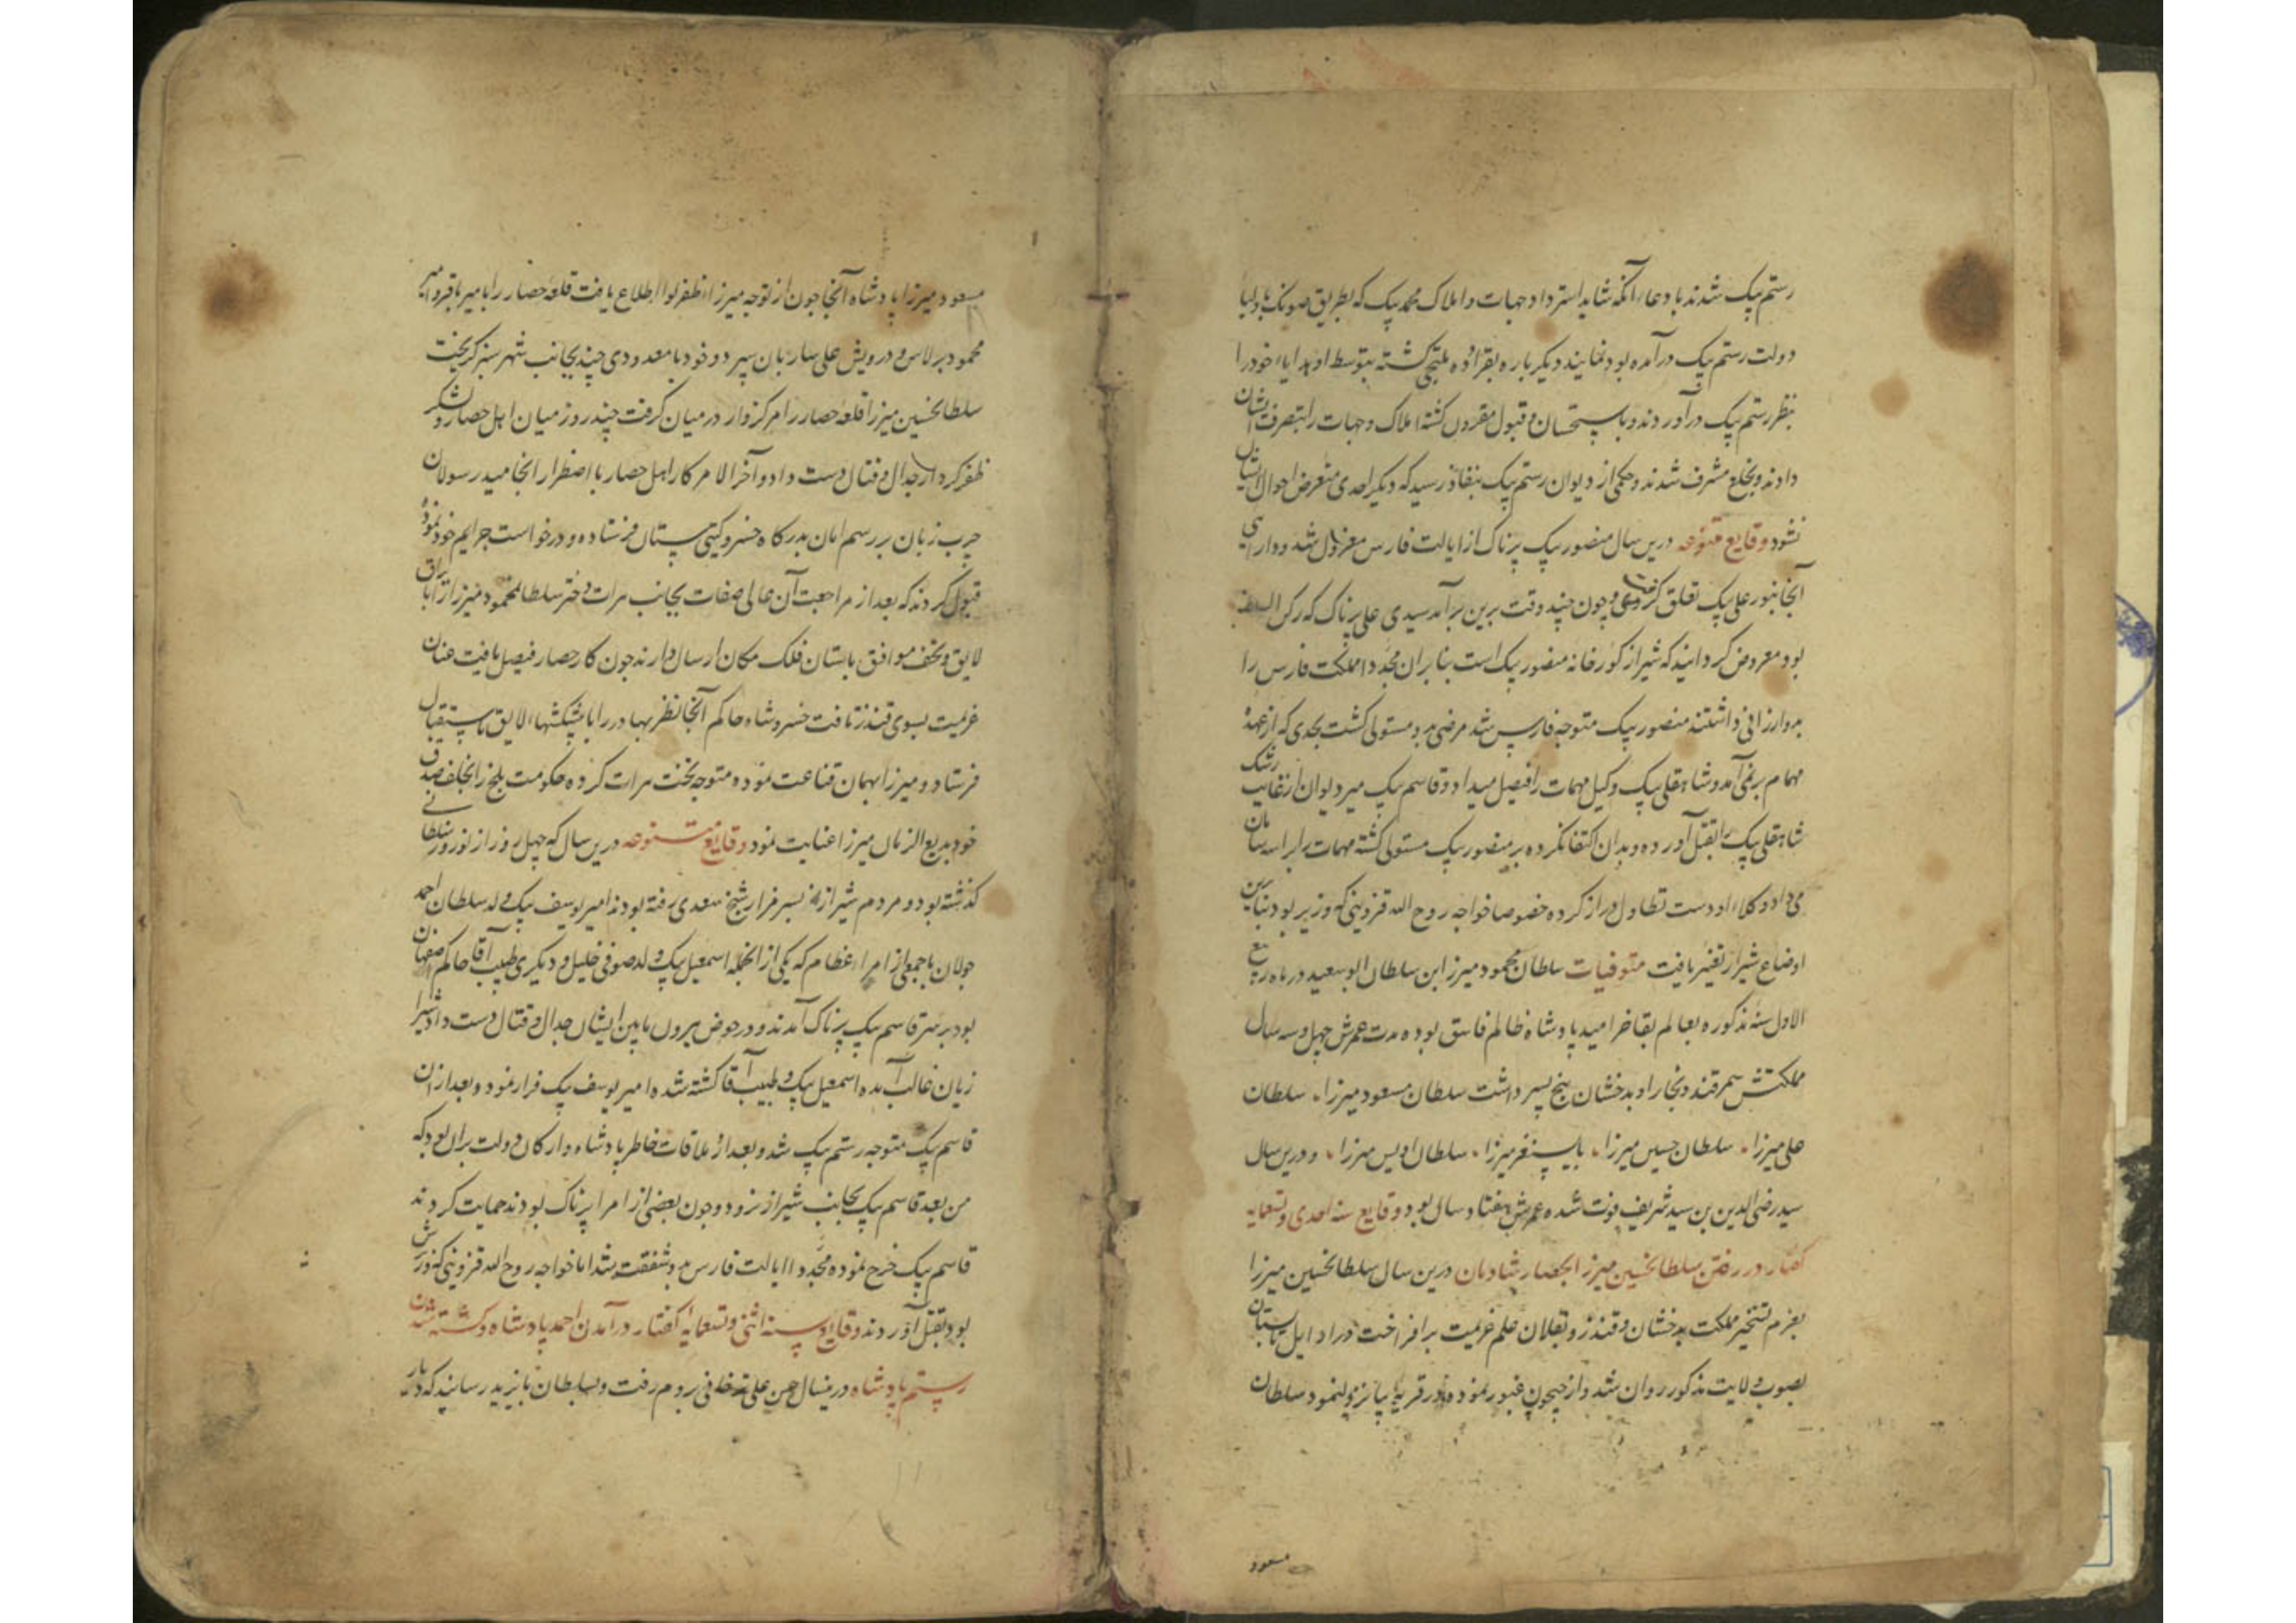 رستم بیک شدند بادعاء آنکه شاید استرداد جهات و املاک محمد بیک که بطریق صونک باولیا
دولت رستم بیک درآمده بود نمایند دیکر باره بقرا ملتجی کشته بتوسط او هدایاء خود را
بنظر رستم بیک درآوردند و باستحسان و قبول مقرون کشته املاک و جهات را بتصرف ایشان
دادند و بخلع مشرف شدند و حکمی از دیوان رستم بیک بنفاذ رسید که دیکر احدی متعرض احوال ایشان
نشود وقایع متنوعه درین سال منصور بیک پرناک از ایالت فارس معزول شد و دارایی
آنجا بنور علی بیک تعلق کرفت و چون چند وقت برین برآمد سیدی علی پرناک که رکن السلطنه
بود معروض کردانید که شیراز کورخانه منصور بیک است بنابران مجددا مملکت فارس را
بدو ارزانی داشتند منصور بیک متوجه فارس شد مرضی بدو مستولی کشت بحدی که از عهدهٔ
مهام برنمی آمد و شاهقلی بیک وکیل مهمات را فیصل میداد و قاسم بیک میر دیوان از غایت رشک
شاهقلی بیک را بقتل آورده و بدان اکتفا نکرده بر منصور بیک مستولی کشته مهمات را براسه سامان
می داد و وکلاء او دست تطاول دراز کرده خصوصا خواجه روح الله قزوینی که وزیر بود بنابرین
اوضاع شیراز تغییر یافت متوفیات سلطان محمود میرزا ابن سلطان ابو سعید در ماه ربیع
الاول سنه مذکوره بعالم بقا خرامید پادشاه ظالم فاسق بوده مدت عمرش چهل و سه سال
مملکتش سمرقند و بخارا و بدخشان پنج پسر داشت سلطان مسعود میرزا، سلطان
علی میرزا، سلطان حسین میرزا، بایسنغر میرزا، سلطان اویس میرزا، و درین سال
سید رضی الدین بن سید شریف فوت شده عمرش هفتاد سال بود وقایع سنه احدی و تسعمایه
کفتار در رفتن سلطانحسین میرزا بحصار شادمان درین سال سلطانحسین میرزا
بعزم تسخیر مملکت بدخشان و قندز و بقلان علم عزیمت برافراخت و در اوایل تابستان
بصوب ولایت مذکور روان شد و از جیحون عبور نموده در قریه نزول نمود سلطان
مسعود
مسعود میرزا پادشاه آنجا چون از توجه میرزاء ظفر لوا اطلاع یافت قلعه حصار را بامیر باقر و امیر
محمود برلاس و درویش علی ساربان سپرد و خود با معدودی چند بجانب شهر سبز کریخت
سلطانحسین میرزا قلعه حصار را مرکزوار در میان کرفت چند روز میان اهل حصار و لشکر
ظفر کردار جدال و قتال دست داد و آخر الامر کار اهل حصار باضطرار انجامید رسولان
چرب زبان بر رسم امان بدرکاه خسرو کیتی ستان فرستاده و درخواست جرایم خود نموده
قبول کردند که بعد از مراجعت آن عالی صفات بجانب هرات دختر سلطانمحمود میرزا را با یراق
لایق و تحف موافق باستان فلک مکان ارسال دارند چون کار حصار فیصل یافت عنان
عزیمت بسوی قندز تافت خسرو شاه حاکم آنجا نظر بهادر را با پیشکشهاء لایق باستقبال
فرستاد و میرزا بهمان قناعت نموده متوجه تخت هرات کرده حکومت بلخ را بخلف صدق
خود بدیع الزمان میرزا عنایت نمود وقایع متنوعه درین سال که چهل روز از نوروز سلطانی
کذشته بود و مردم شیراز بسر مزار شیخ سعدی رفته بودند امیر یوسف بیک ولد سلطان احمد
جولان با جمعی از امراء عظام که یکی از انجمله اسمعیل بیک ولد صوفی خلیل و دیکری طبیب آقا حاکم صفهان
بود بر سر قاسم بیک پرناک آمدند و در حوض بیرون مابین ایشان جدال و قتال دست داد شیرا
زیان غالب آمده اسمعیل بیک و طبیب آقا کشته شد و امیر یوسف بیک فرار نمود و بعد از آن
قاسم بیک متوجه رستم بیک شد و بعد از ملاقات خاطر پادشاه و ارکان دولت بران بود که
من بعد قاسم بیک بجانب شیراز نرود و چون بعضی از امرا پرناک بودند حمایت کردند
قاسم بیک خرج نموده مجددا ایالت فارس بدو شفقت شد اما خواجه روح الله قزوینی که وزیرش
بود بقتل آوردند وقایع سنه اثنی و تسعمایه کفتار درآمدن احمد پادشاه و کشته شدن
رستم پادشاه درینسال حسن علی ترخانی بروم رفت و بسلطان بایزید رسانید که دیار